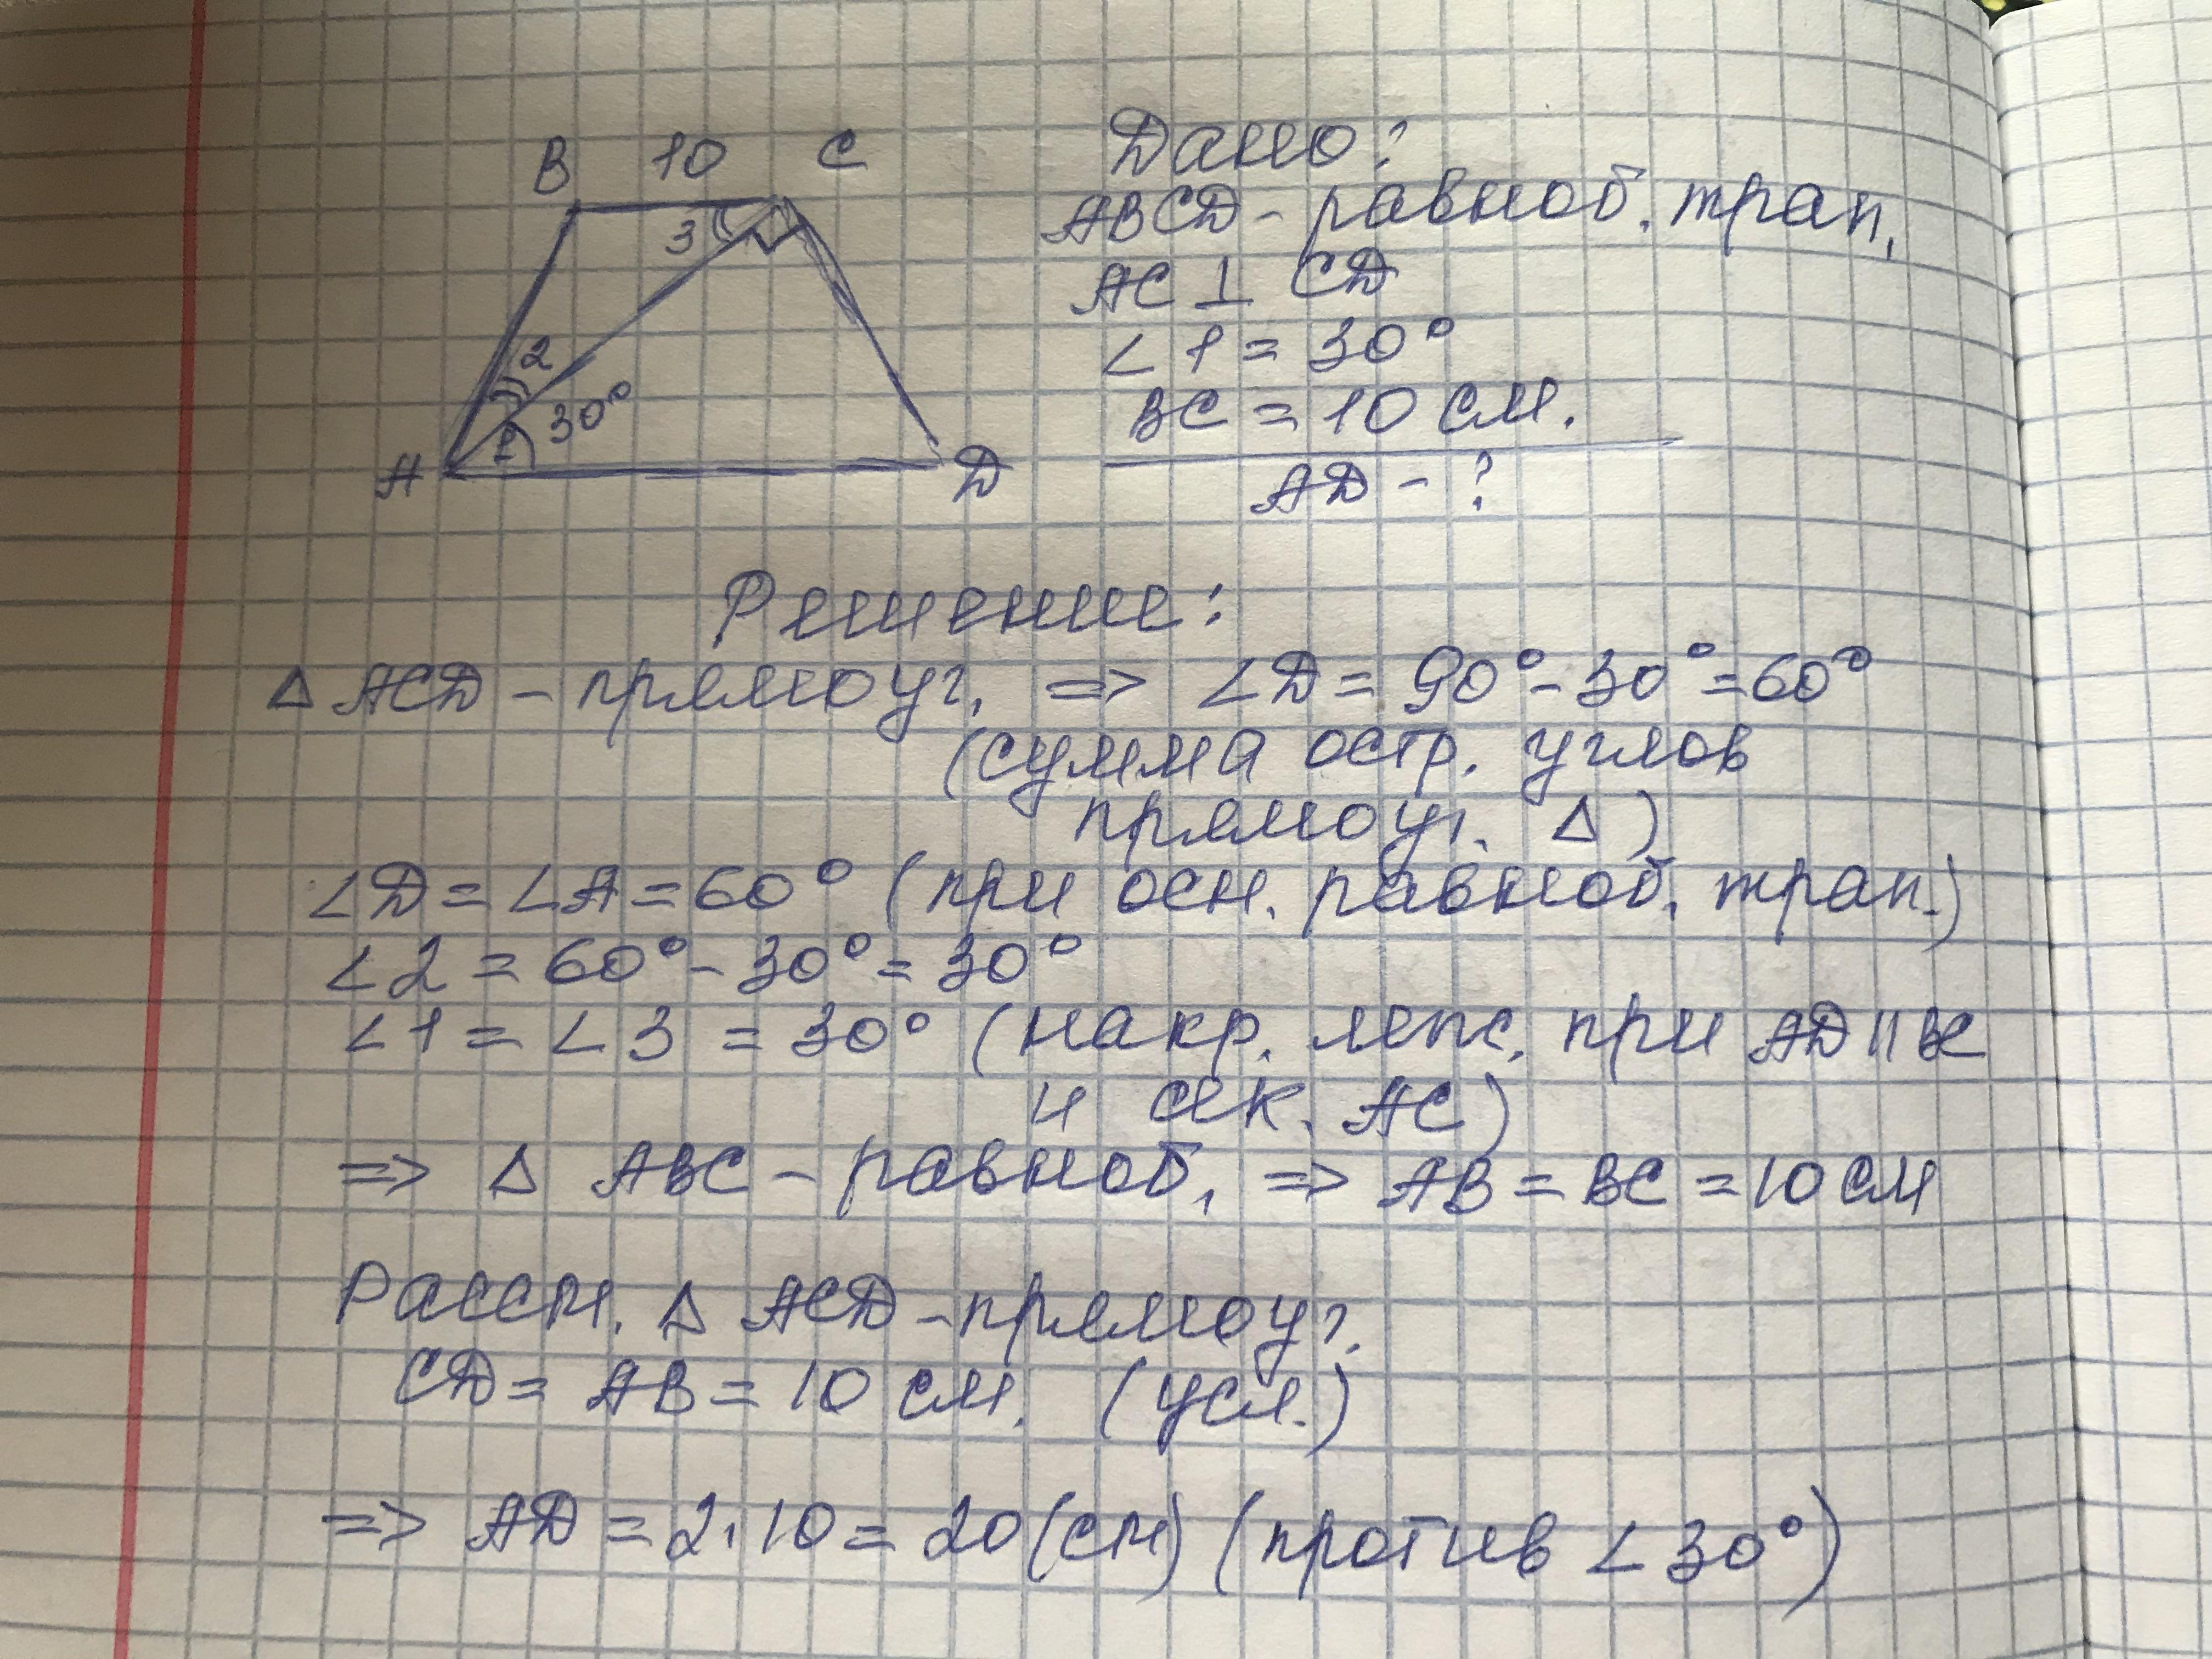 B 10 C
3
2
30°
1
A D
Дано:
ABCD - равноб. трап.
AC ⊥ CD
∠1 = 30°
BC = 10 см.
AD - ?
Решение:
△ ACD - прямоуг. => ∠D = 90° - 30° = 60°
(сумма остр. углов
прямоуг. △)
∠D = ∠A = 60° (при осн. равноб. трап.)
∠2 = 60° - 30° = 30°
∠1 = ∠3 = 30° (накр. леж. при AD || BC
и сек. AC)
=> △ ABC - равноб. => AB = BC = 10 см
Рассм. △ ACD - прямоуг.
CD = AB = 10 см. (усл.)
=> AD = 2 · 10 = 20 (см) (против ∠30°)